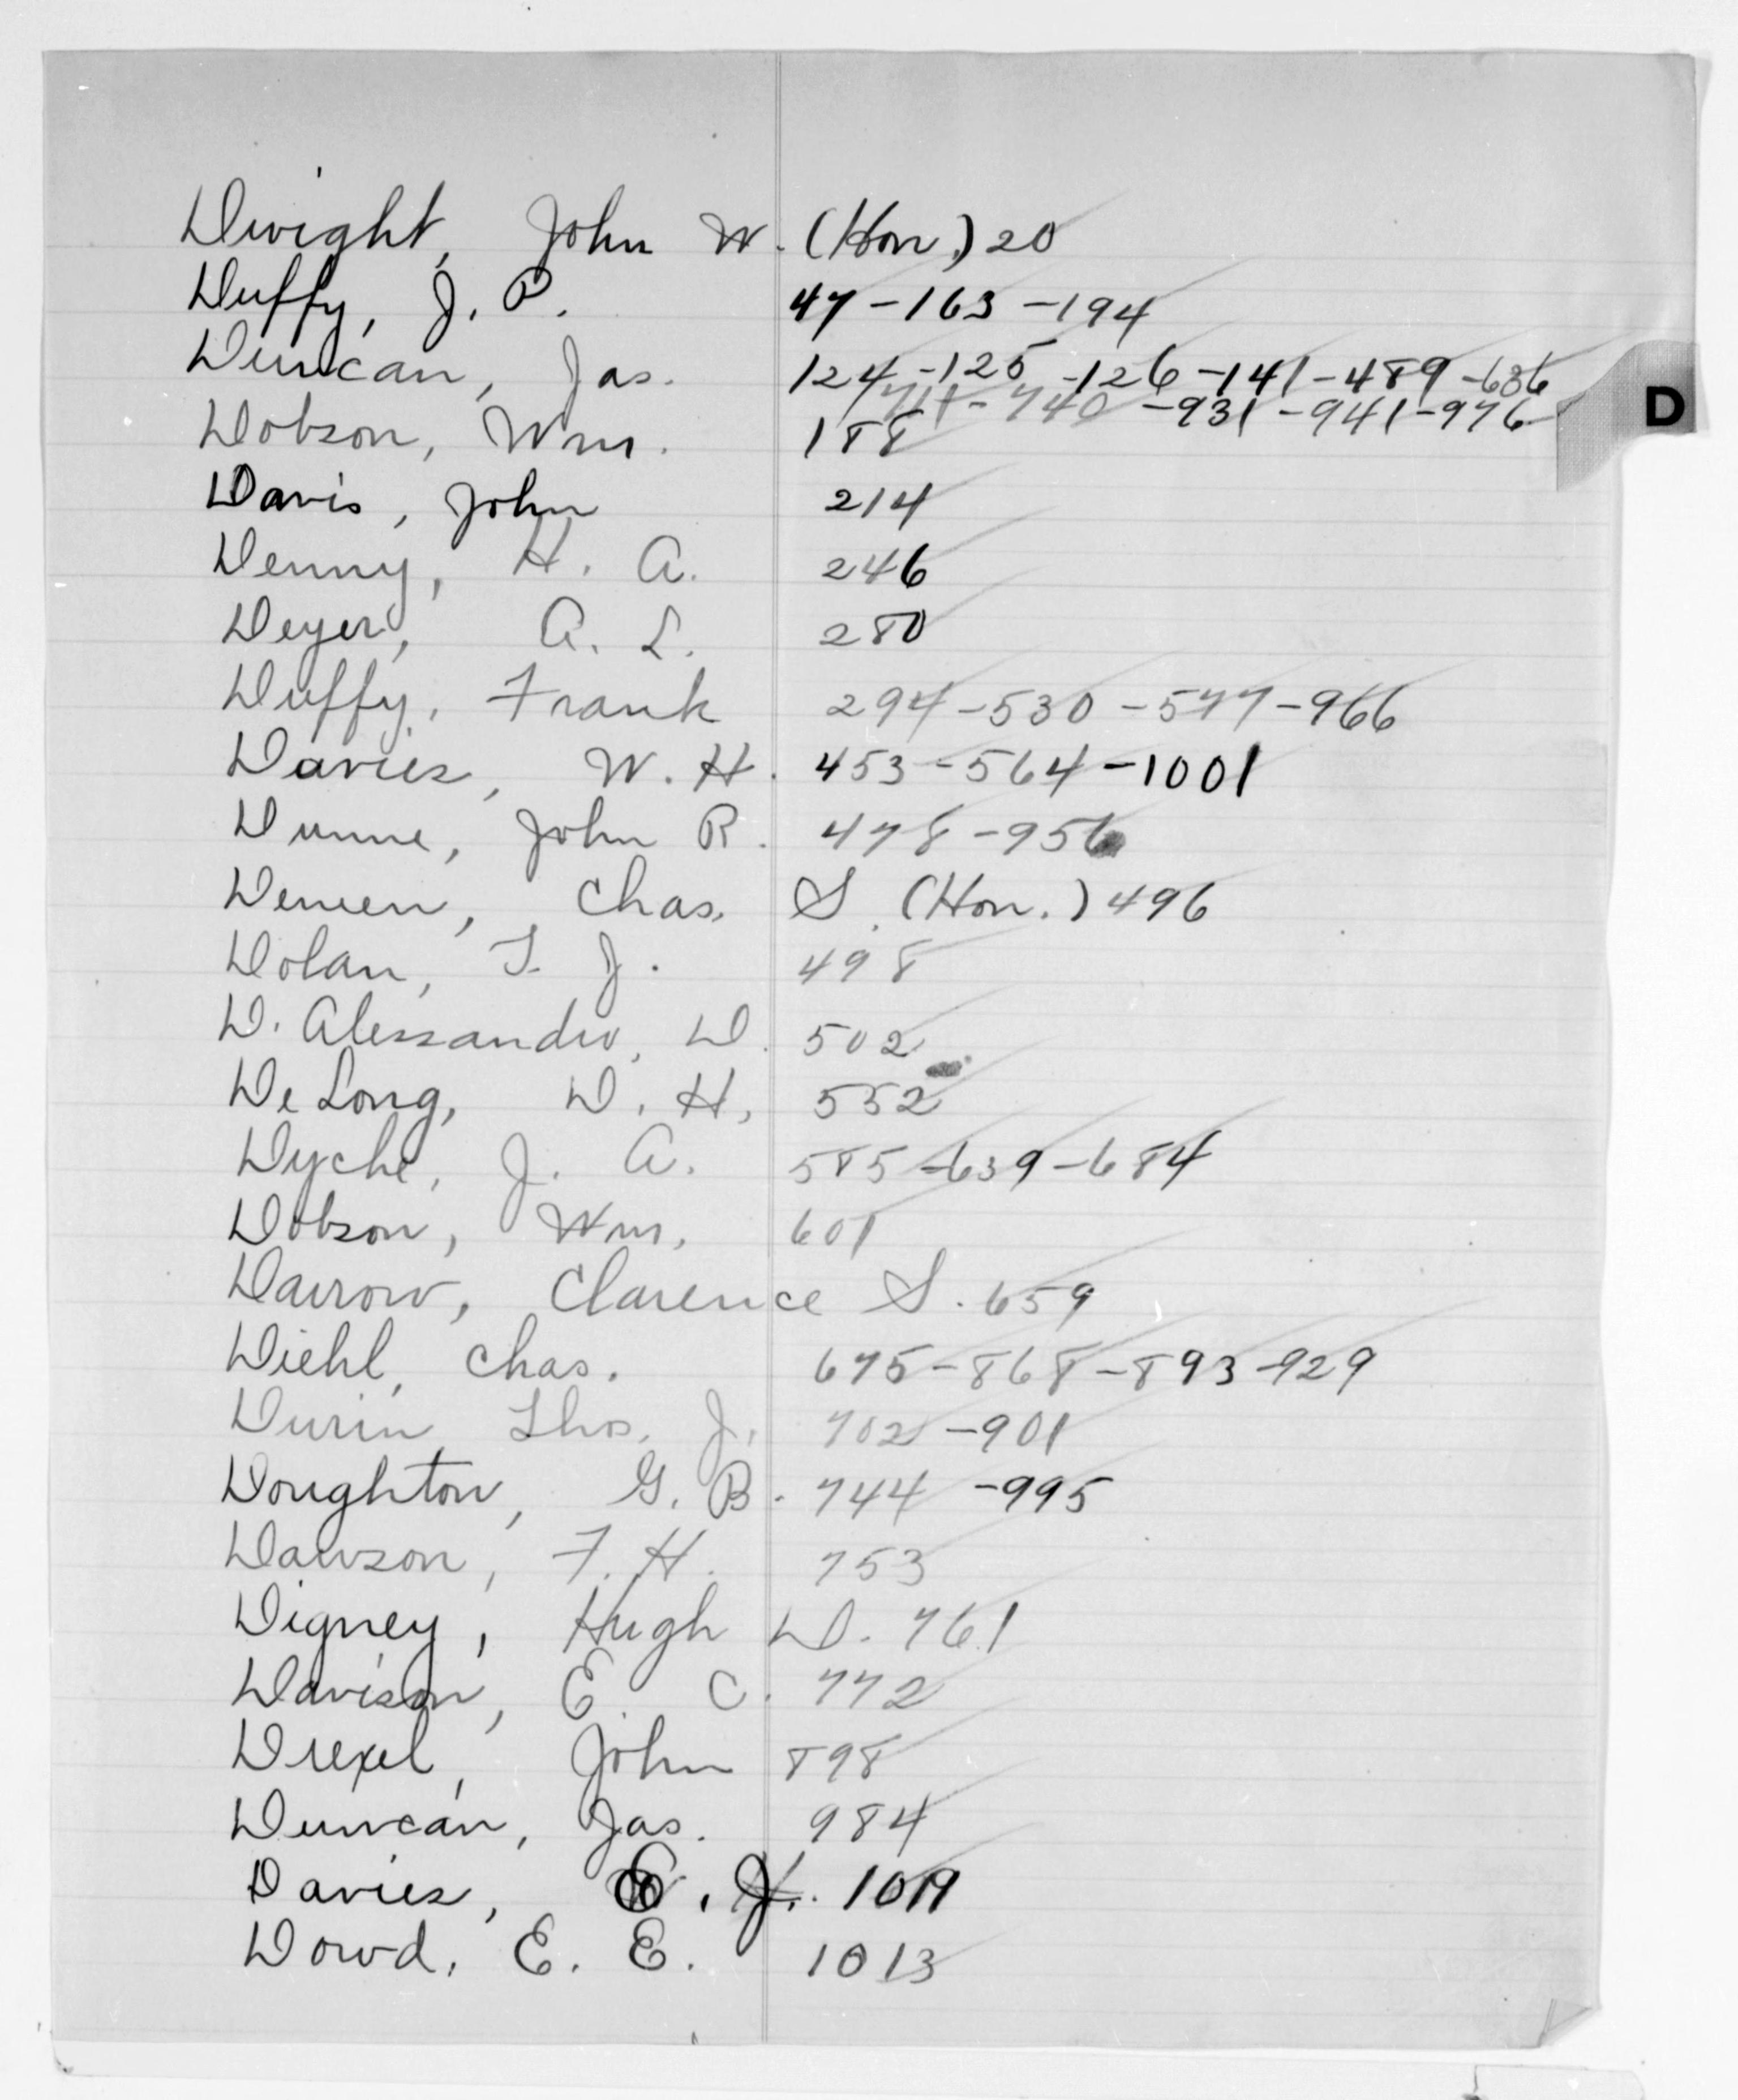 Dwight, John W. (Hon.) 20
Duffy, J. P. 47-163-194
Duncan, Jas. 124-125-126-141-489-636
711-740-931-941-976
Dobson, Wm. 188
D
Davis, John 214
Denny, H. A. 246
Deyer, A. L. 280
Duffy, Frank 294-530-577-966
Davies, W. H. 453-564-1001
Dunne, John R. 478-956
Deneen, Chas. S. (Hon.) 496
Dolan, T. J. 498
D. Alessandro, D. 502
De Long, D. H. 552
Dyche, J. A. 585-639-684
Dobson, Wm. 601
Darrow, Clarence S. 659
Diehl, Chas. 675-868-893-929
Durin Thos. J. 702-901
Doughton, G. B. 744-995
Dawson, F. H. 753
Digney, Hugh D. 761
Davison, E. C. 772
Drexel, John 898
Duncan, Jas. 984
Davies, E. J.
Dowd, E. E. 1013